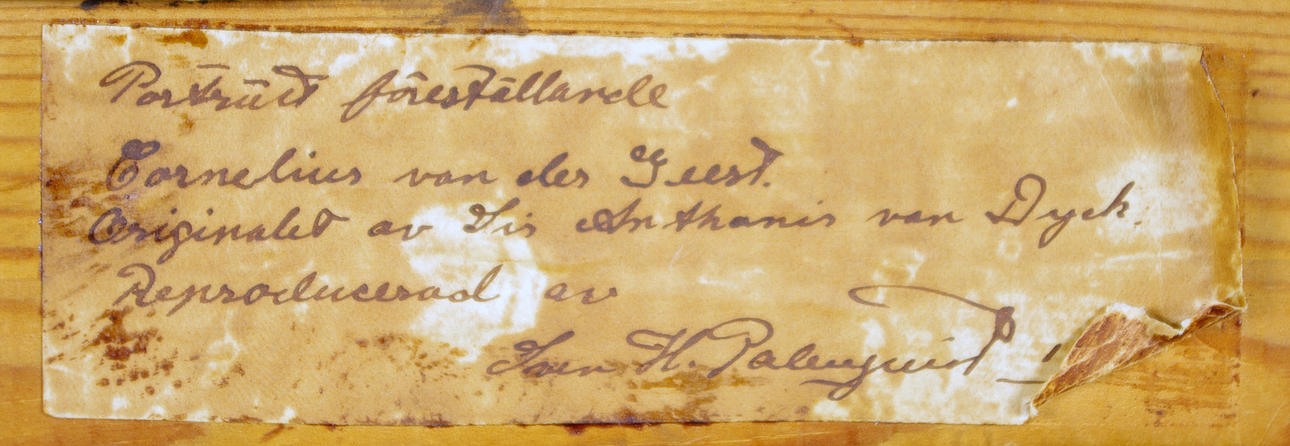 Porträtt föreställande
Cornelius van der Geest.
Originalet av Sir Anthonis van Dyck.
Reproducerad av
Sven H. Palmquist